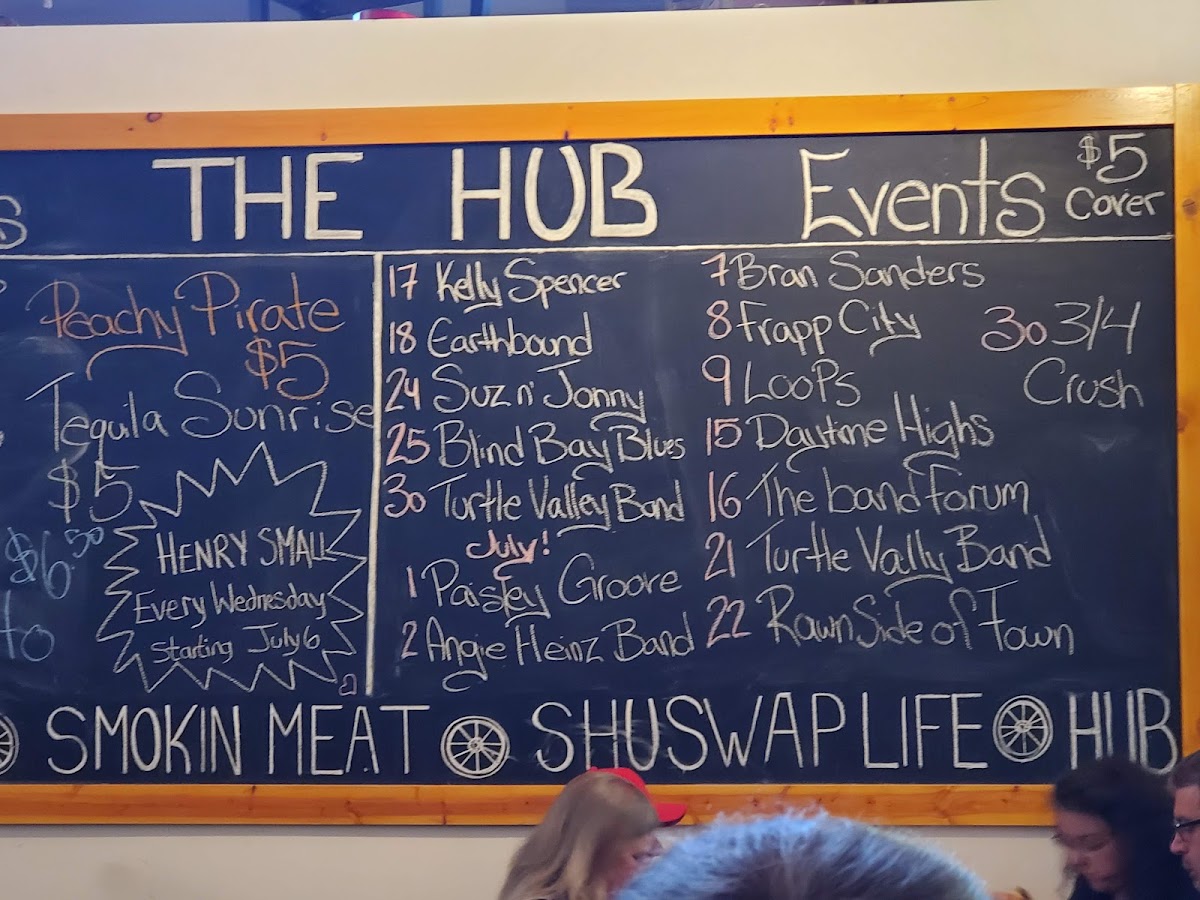 THE HUB
Events
$5
cover
Peachy Pirate
$5
Tequila Sunrise
$5
$6.50
to
HENRY SMALL
Every Wednesday
Starting July 6
17 Kelly Spencer
18 Earthbound
24 Suz n' Jonny
25 Blind Bay Blues
30 Turtle Valley Band
July!
1 Paisley Groove
2 Angie Heinz Band
7 Bran Sanders
8 Frapp City
9 LooPs
15 Daytime Highs
16 The band forum
21 Turtle Vally Band
22 Rawn Side of Town
30 3/4
Crush
SMOKIN MEAT SHUSWAP LIFE HUB